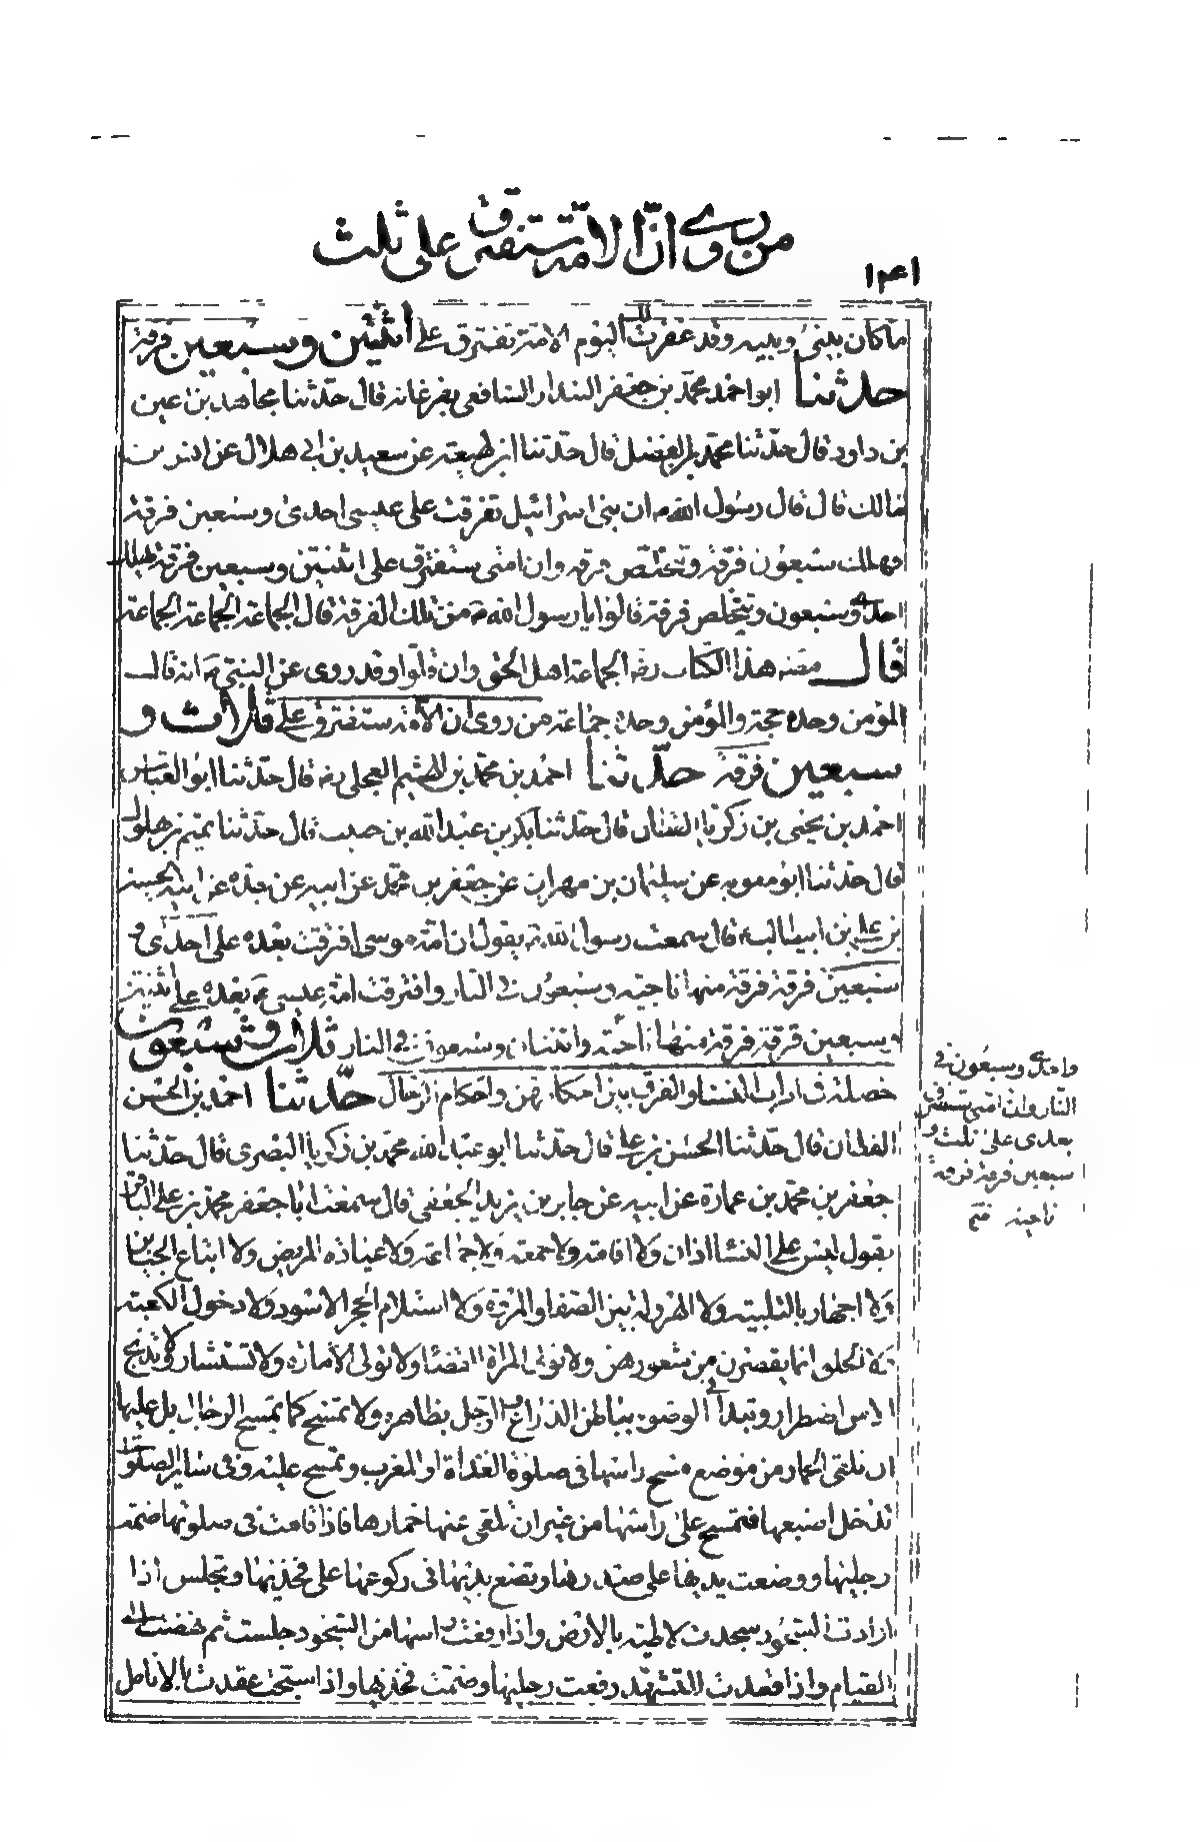 من روى ان الامة ستفترق على ثلث
١٣١
ما كان بينى وبينه وقد غفرت لك اليوم الامة تفترق على اثنتين وسبعين فرقة
حدثنا ابو احمد محمد بن جعفر البندار الشافعى بفرغانه قال حدثنا مجاهد بن اعين
بن داود قال حدثنا محمد بن الفضل قال حدثنا ابن لهيعة عن سعيد بن ابى هلال عن انس بن
مالك قال قال رسول الله ص ان بنى اسرائيل تفرقت على عيسى احدى وسبعين فرقة
فهلك سبعون فرقة وتخلص فرقة وان امتى ستفترق على اثنتين وسبعين فرقة فيهلك
احدى وسبعون ويتخلص فرقة قالوا يا رسول الله ص من تلك الفرقة قال الجماعة الجماعة الجماعة
قال مصنف هذا الكتاب رضه الجماعة اهل الحق وان قلوا وقد روى عن النبى ص انه قال
المؤمن وحده حجة والمؤمن وحده جماعة من روى ان الامة ستفترق على ثلاث و
سبعين فرقة حدثنا احمد بن محمد بن الهيثم العجلى رضه قال حدثنا ابو العباس
احمد بن يحيى بن زكريا القطان قال حدثنا بكر بن عبد الله بن حبيب قال حدثنا تميم بن بهلول
قال حدثنا ابو معوية عن سليمان بن مهران عن جعفر بن محمد عن ابيه عن جده عن ابيه الحسين
بن على بن ابيطالب ع قال سمعت رسول الله ص يقول ان امة موسى افترقت بعده على احدى و
سبعين فرقة فرقة منها ناجية وسبعون فى النار وافترقت امة عيسى ع بعده على اثنتين
وسبعين فرقة فرقة منها ناجية واثنتان وسبعون فى النار ثلاث وسبعون
خصلة فى اداب النساء والفرق بين احكامهن واحكام الرجال حدثنا احمد بن الحسن
القطان قال حدثنا الحسن بن على قال حدثنا ابو عبد الله محمد بن زكريا البصرى قال حدثنا
جعفر بن محمد بن عمارة عن ابيه عن جابر بن يزيد الجعفى قال سمعت ابا جعفر محمد بن على الباقر
يقول ليس على النساء اذان ولا اقامة ولا جمعة ولا جماعة ولا عيادة المريض ولا اتباع الجنايز
ولا اجهار بالتلبية ولا الهرولة بين الصفا والمروة ولا استلام الحجر الاسود ولا دخول الكعبة
ولا الحلق انما يقصرن من شعورهن ولا تولى المرأة القضاء ولا تولى الامارة ولا تستشار ولا تذبح
الا من اضطرار وتبدأ فى الوضوء بباطن الذراع و الرجل بظاهره ولا تمسح كما يمسح الرجال بل عليها
ان تلقى الخمار من موضع مسح راسها فى صلوة الغداة او المغرب وتمسح عليه وفى سائر الصلوات
تدخل اصبعها فتمسح على راسها من غير ان تلقى عنها خمارها فاذا قامت فى صلوتها ضمت
رجليها ووضعت يديها على صدرها وتضع يديها فى ركوعها على فخذيها وتجلس اذا
ارادت السجود سجدت لاطية بالارض واذا رفعت راسها من السجود جلست ثم نهضت الى
القيام واذا قعدت للتشهد رفعت رجليها وضمت فخذيها واذا سبحت عقدت بالانامل
واحدى وسبعون فى
النار وان امتى ستفترق
بعدى على ثلث و
سبعين فرقة فرقة
ناجية